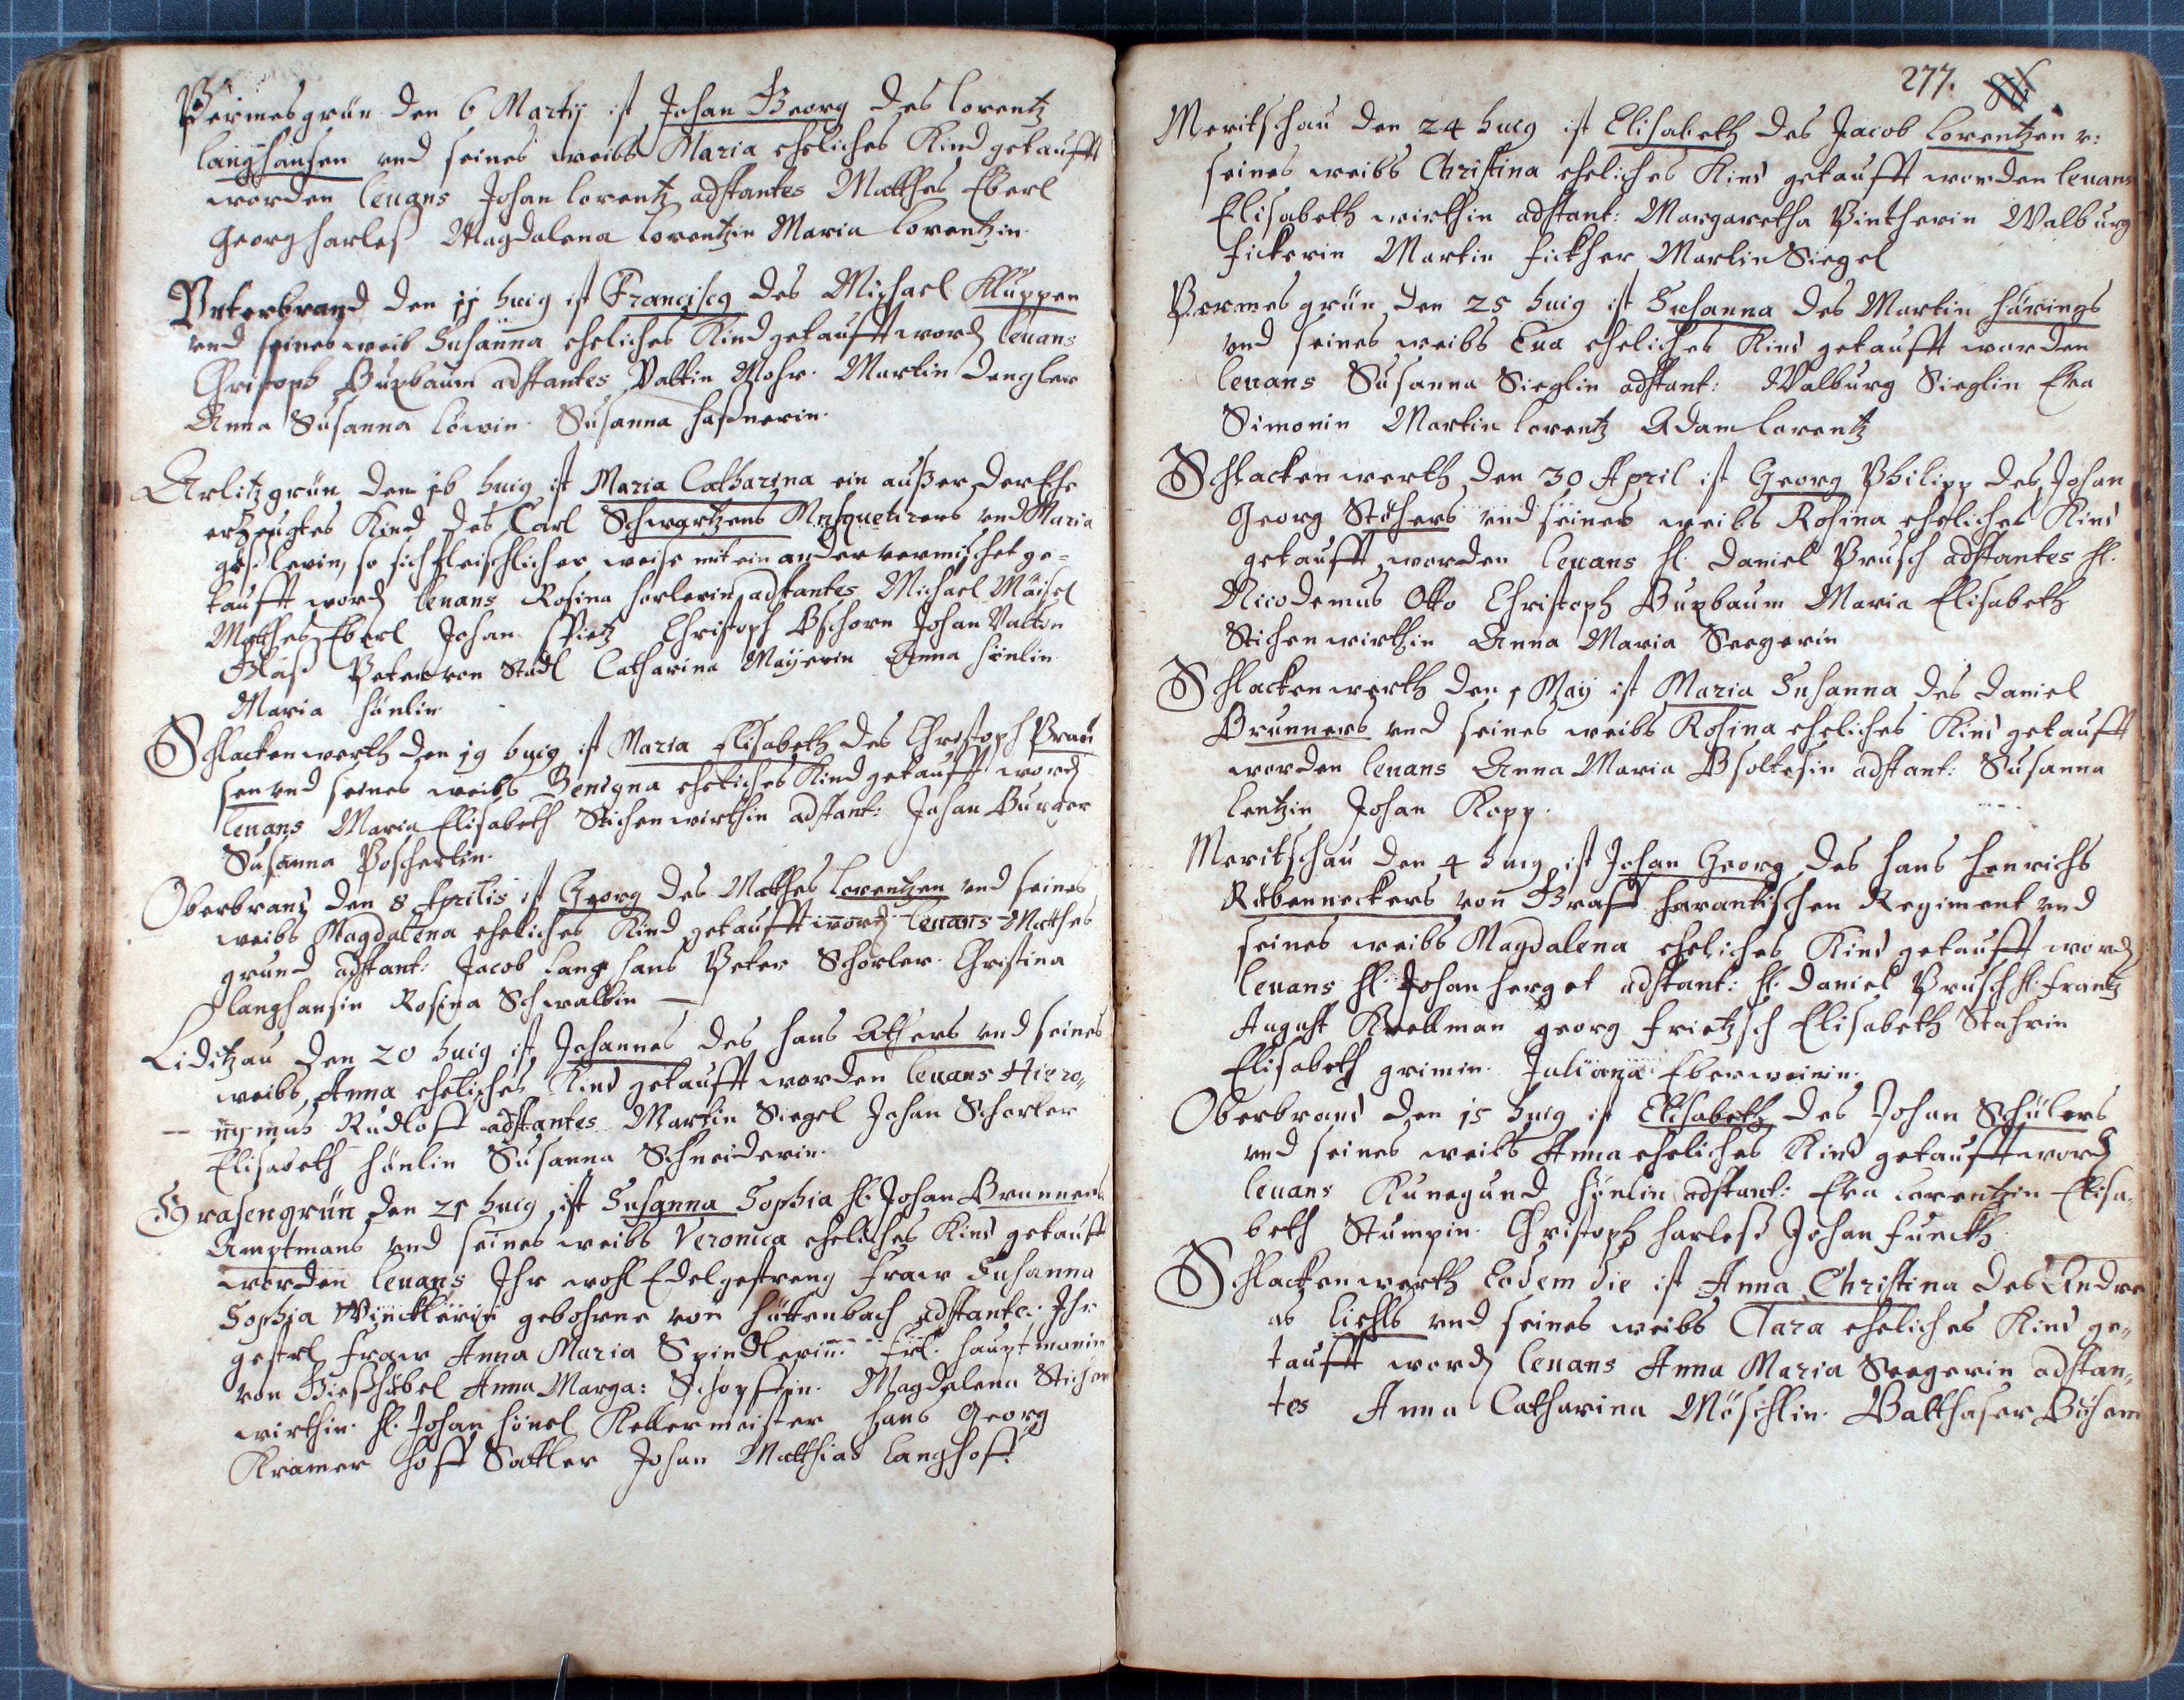 Permesgrün den 6 Martij ist Johan Georg des Lorentz
Langhansen vnd seines weibs Maria eheliches Kind getaufft
worden leuans Johan Lorentz adstantes Matthes Eberl
Georg Harleß Magdalena Lorentzin Maria Lorentzin.
Vnterbrand den 11 huig ist Francisca des Michael Kluppen
vnd seines weib Susanna eheliches Kind getaufft word leuans
Christoph Buxbaum adstantes Valtin Mohr. Martin Dengler
Anna Susanna Löwin. Susanna Haßnerin.
Arlitzgrün den 16 huig ist Maria Catharina ein außer der Ehe
erzeugtes Kind des Carl Schwartzens Musquetirers vnd Maria
so sich fleischlicher weise mit ein ander vermischet ge-
taufft word leuans Rosina Horlerin adstantes Michael Mäisel
Matthes Eberl Johan Christoph Pschorn Johan Valtin
Peter von Stadl Catharina Mayerin Anna Hönlin
Maria Hönlin.
Schlackenwerth den 19 huig ist Maria Elisabeth des Christoph Praun
sen vnd seines weibs Benigna eheliches Kind getaufft word
leuans Maria Elisabeth Stichenwirthin adstant: Johan Burger
Susanna Poscherlin.
Oberbrand den 8 Aprilis ist Georg des Matthes Lorentzen vnd seines
weibs Magdalena eheliches Kind getaufft word leuans Matthes
grund adstant: Jacob Lang hans Peter Schorler. Christina
Langhansin Rosina Schwalbin —
Liditzau den 20 huig ist Johannes des Hans Athers vnd seines
weibs Anna eheliches Kind getaufft worden leuans Hiero„
— nymus Rudloff adstantes Martin Siegel Johan Schorler
Elisabeth Hönlin Susanna Schneiderin.
Grasengrün den 21 huig ist Susanna Sophia H. Johan Brunners
Amptmans vnd seines weibs Veronica eheliches Kind getaufft
worden leuans Ihr wohl Edelgestreng Fraw Susanna
Sophia Wincklerin gebohrne von Hüttenbach adstantes: Ihr
gestr. Fraw Anna Maria Spindlerin. Frl. Hauptmanin
von Gießhübel Anna Marga: Schopffin. Magdalena Stichen
wirthin. H. Johan Hönel Kellermeister Hans Georg
Kramer Hoff Sattler Johan Matthias Langhoff.
277.
Meritschau den 24 huig ist Elisabeth des Jacob Lorentzen v:
seines weibs Christina eheliches Kind getaufft worden leuans
Elisabeth wirthin adstant: Margaretha Pintherin Walburg
Fickerin Martin Fickher Martin Siegel
Permesgrün den 25 huig ist Susanna des Martin Härings
vnd seines weibs Eua eheliches Kind getaufft worden
leuans Susanna Sieglin adstant: Walburg Sieglin Eva
Simonin Martin Lorentz Adam Lorentz
Schlackenwerth den 30 April ist Georg Philipp des Johan
Georg Stöhers vnd seines weibs Rosina eheliches Kind
getaufft worden leuans H. Daniel Prusch adstantes H.
Nicodemus Otto Christoph Buxbaum Maria Elisabeth
Stichenwirthin Anna Maria Seegerin
Schlackenwerth den 1 May ist Maria Susanna des Daniel
Brunners vnd seines weibs Rosina eheliches Kind getaufft
worden leuans Anna Maria Psoltesin adstant: Susanna
Lentzin Johan Kopp.
Meritschau den 4 huig ist Johan Georg des Hans Henrichs
Rübenneckers von Graff Harantischen Regiment vnd
seines weibs Magdalena eheliches Kind getaufft word
leuans H. Johan Herget adstant: H. Daniel Prusch H. Frantz
August Kroellman georg Frietzsch Elisabeth Stahrin
Elisabeth grimin. Juliana Eberweinin.
Oberbrand den 15 huig ist Elisabeth des Johan Schülers
vnd seines weibs Anna eheliches Kind getaufft word
leuans Kunegund Hönlin adstant: Eva Lorentzin Elisa„
beth Stumpin. Christoph Harleß Johan Funckh.
Schlackenwerth Eodem die ist Anna Christina des Andre
as Liehls vnd seines weibs Clara eheliches Kind ge„
taufft word leuans Anna Maria Seegerin adstan„
tes Anna Catharina Möschlin. Balthasar Böhem